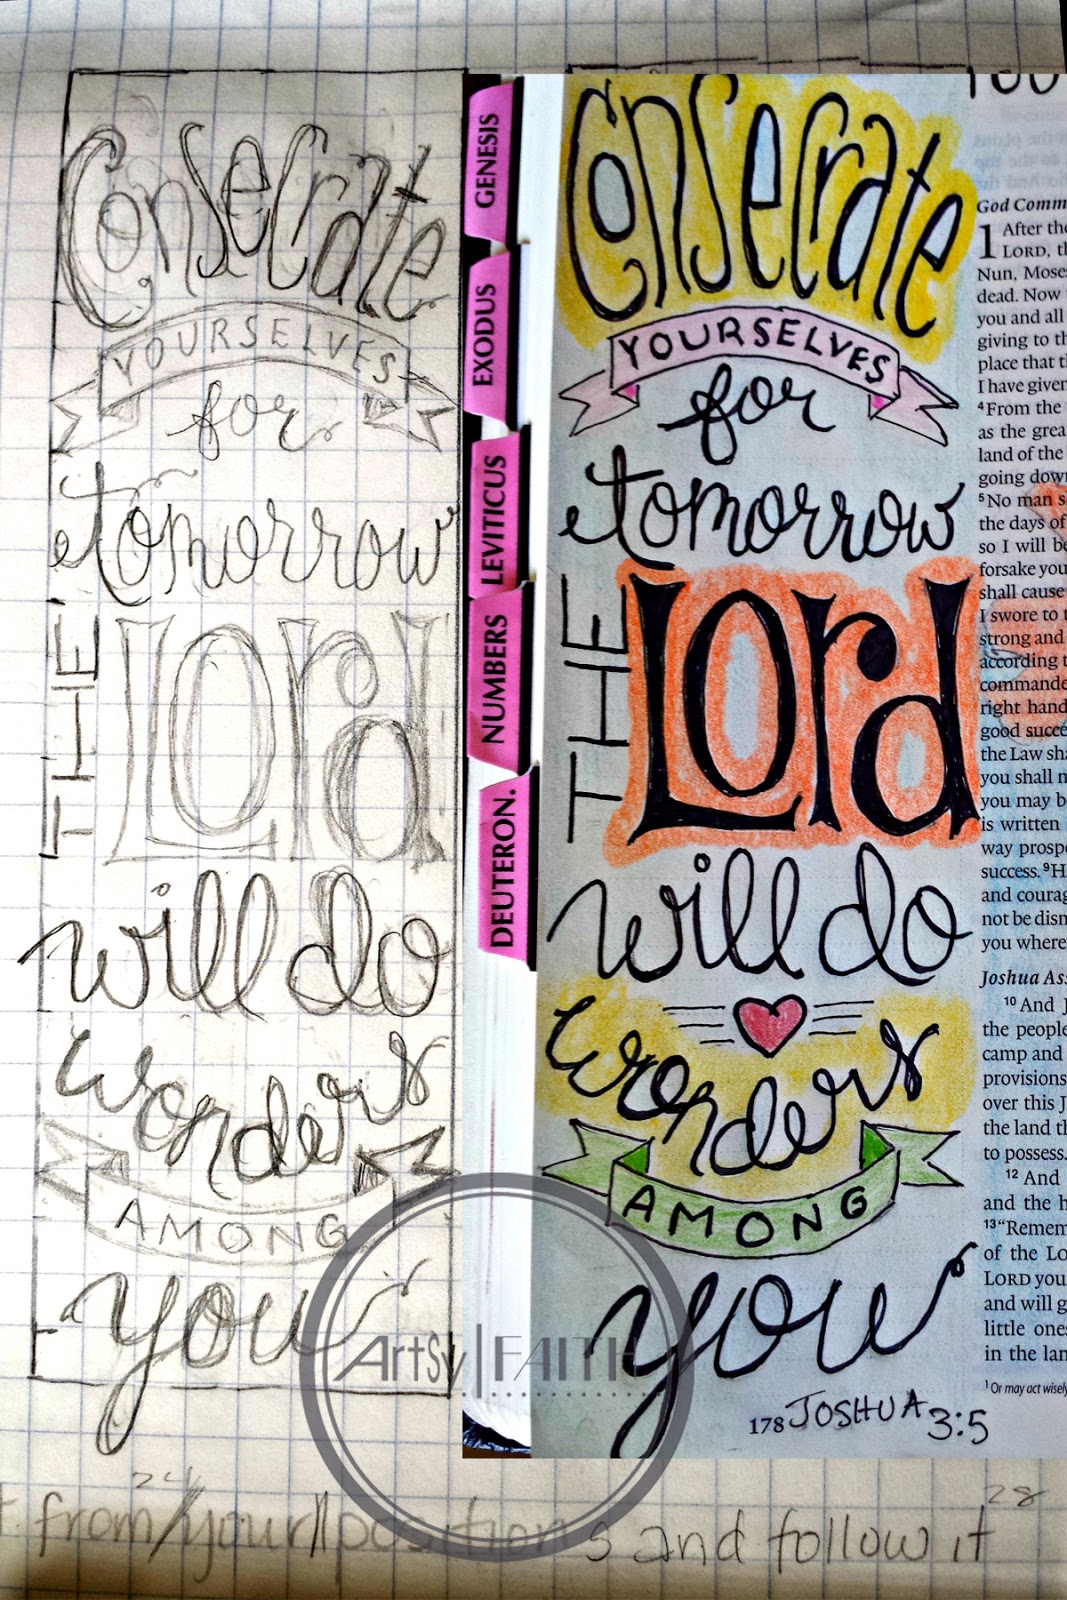 Consecrate
YOURSELVES
for
tomorrow
THE
Lord
will do
wonders
AMONG
you
GENESIS
EXODUS
LEVITICUS
NUMBERS
DEUTERON.
Consecrate
YOURSELVES
for
tomorrow
THE
Lord
will do
wonders
AMONG
you
178 JOSHUA 3:5
God Comm
1 After the
LORD, th
Nun, Mose
dead. Now
you and all
giving to th
place that t
I have given
4 From the
as the grea
land of the
going down
5 No man s
the days of
so I will be
forsake you
shall cause
I swore to t
strong and
according t
commande
right hand
good succe
the Law sha
you shall m
you may b
is written
way prospe
success. 9 H
and courag
not be dism
you where
Joshua Ass
10 And J
the people
camp and
provisions
over this J
the land th
to possess.
12 And
and the h
13 "Remem
of the LO
LORD you
and will g
little ones
in the lan
1 Or may act wisely
ArtSy|FAITH
24 28
from/your||positions and follow it